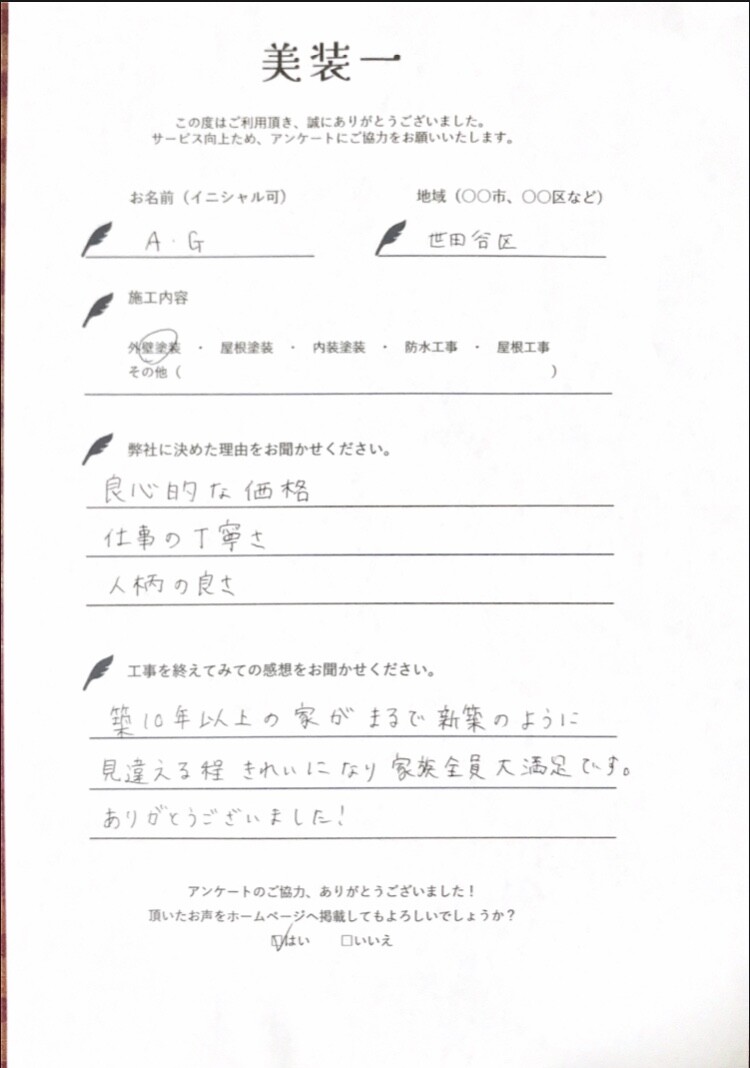 美装一
この度はご利用頂き、誠にありがとうございました。
サービス向上ため、アンケートにご協力をお願いいたします。
お名前（イニシャル可）
地域（〇〇市、〇〇区など）
A・G
世田谷区
施工内容
外壁塗装　・　屋根塗装　・　内装塗装　・　防水工事　・　屋根工事
その他（　　　　　　　　　　）
弊社に決めた理由をお聞かせください。
良心的な価格
仕事の丁寧さ
人柄の良さ
工事を終えてみての感想をお聞かせください。
築10年以上の家がまるで新築のように
見違える程きれいになり家族全員大満足です。
ありがとうございました！
アンケートのご協力、ありがとうございました！
頂いたお声をホームページへ掲載してもよろしいでしょうか？
☑はい　　□いいえ